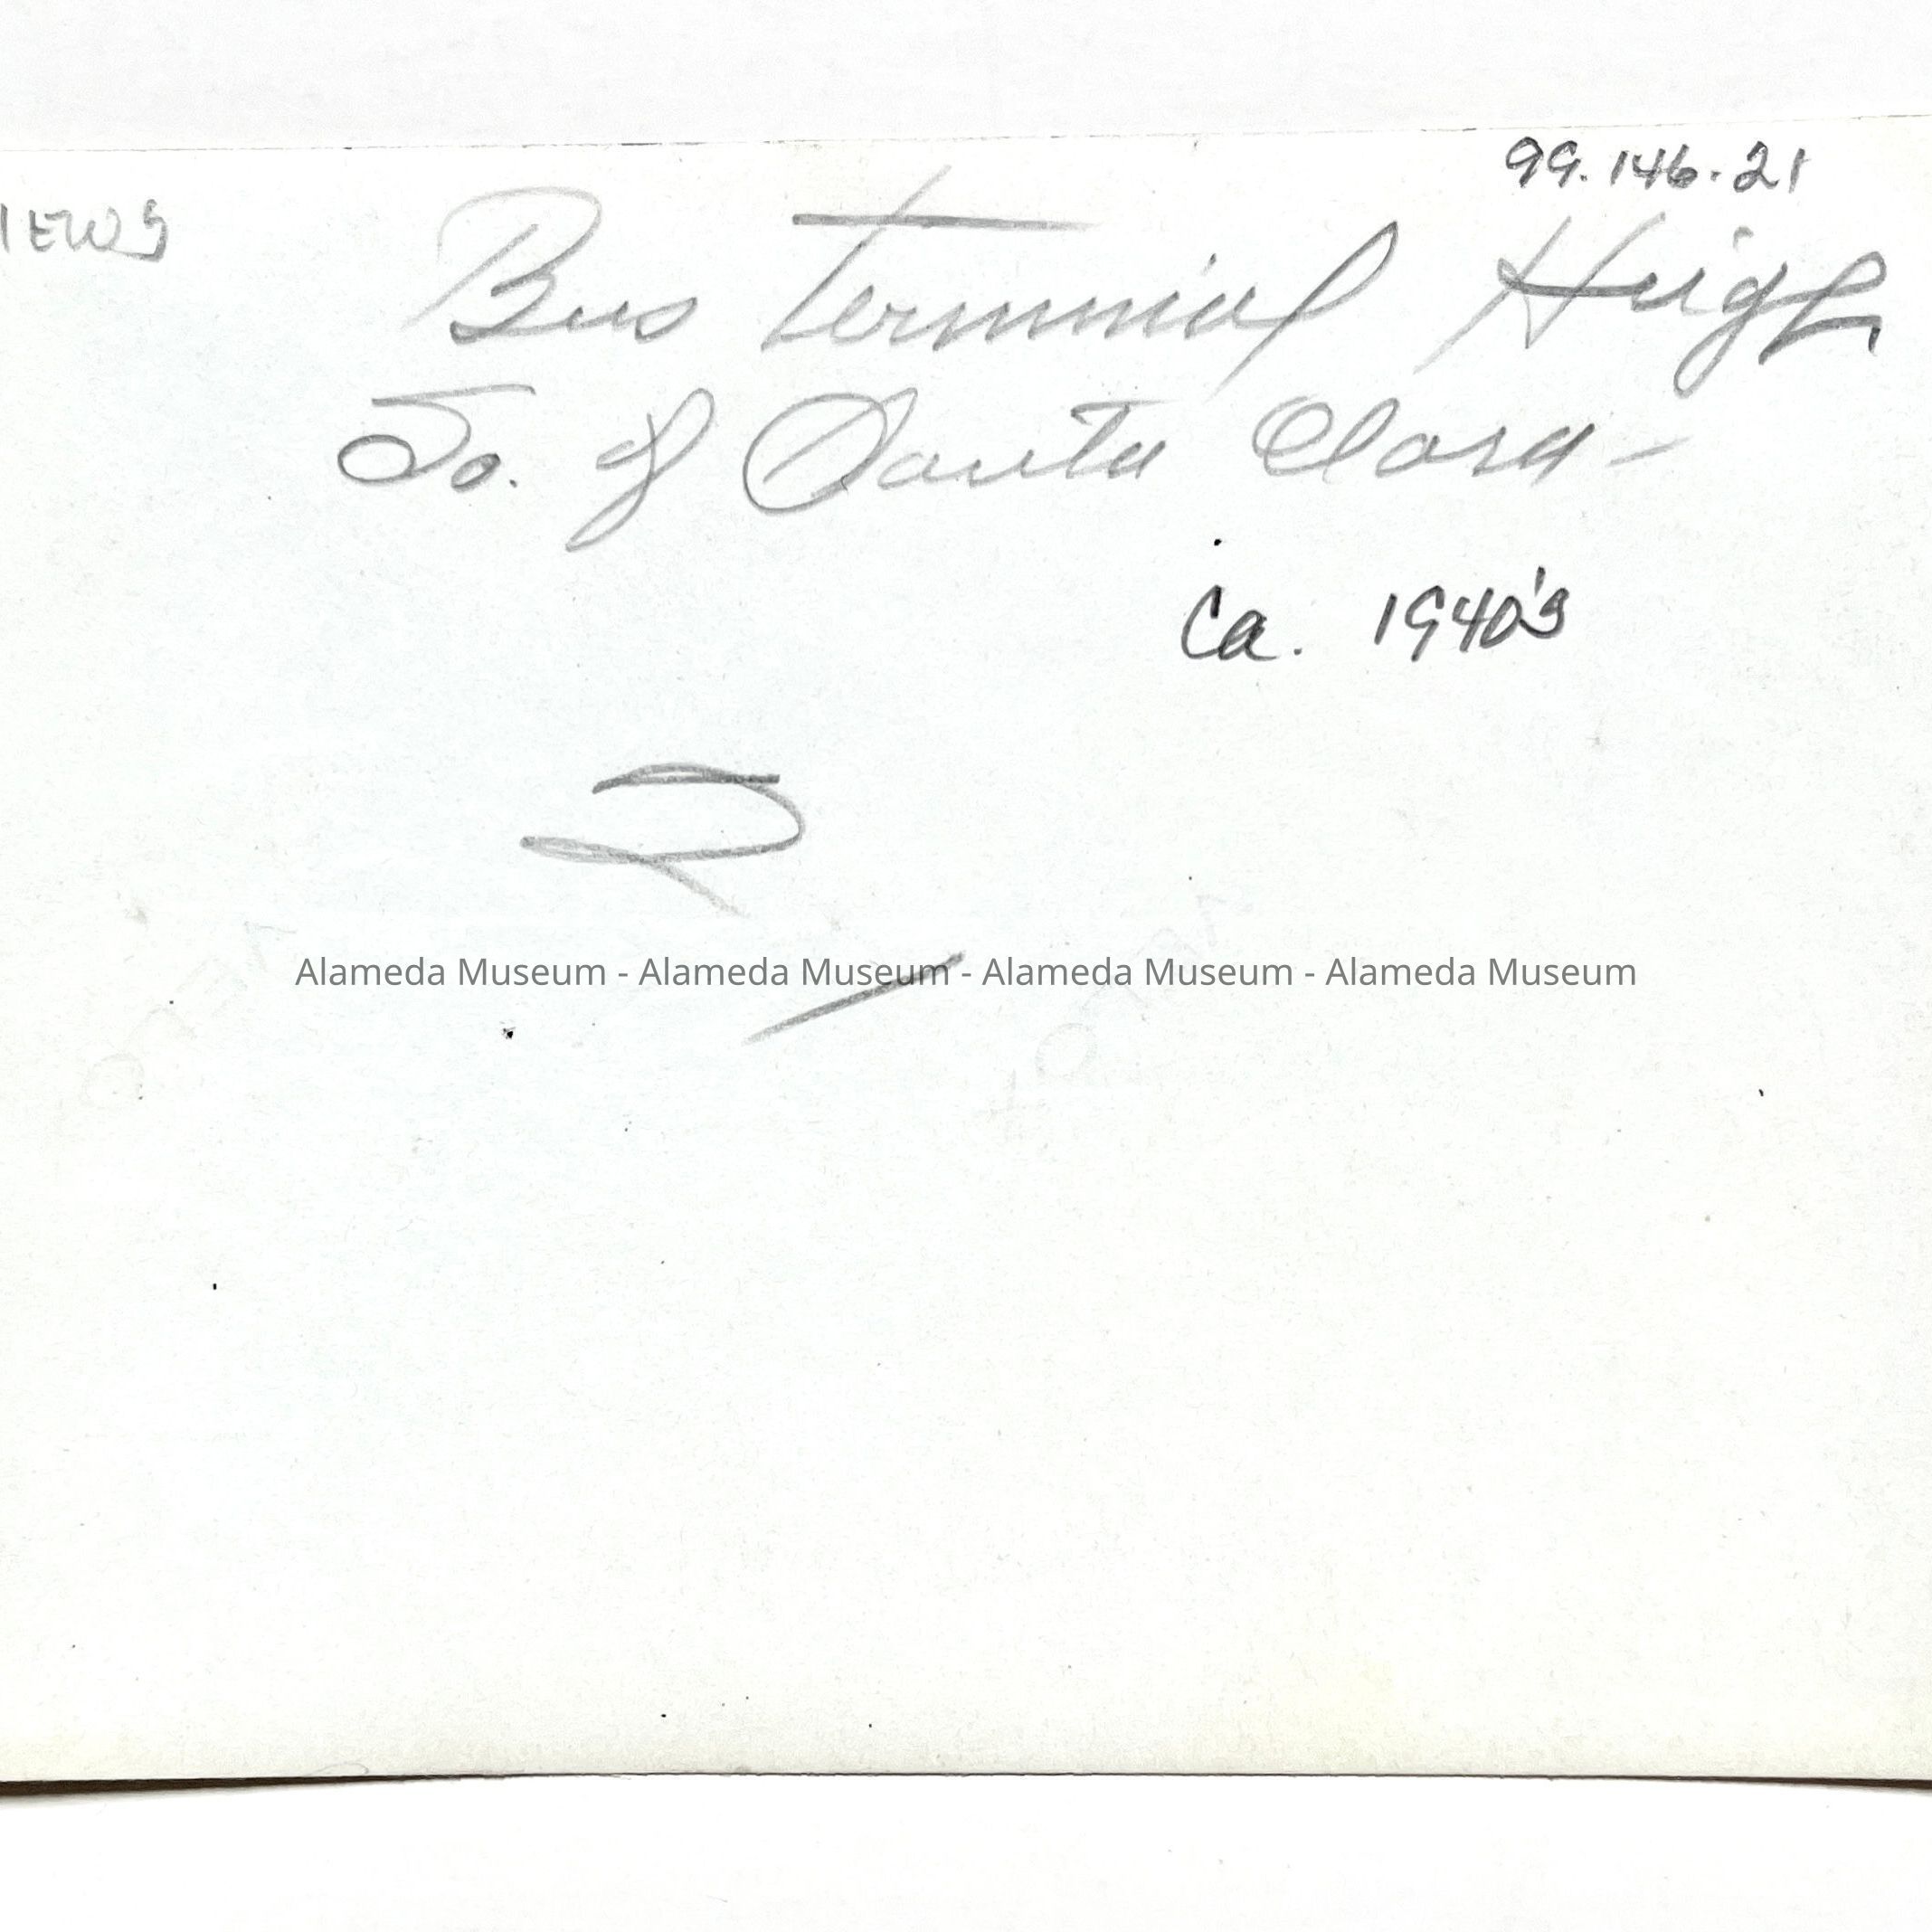 99.146.21
IEWS
Bus Terminal High
So. of Santa Clara -
Ca. 1940's
Alameda Museum - Alameda Museum - Alameda Museum - Alameda Museum